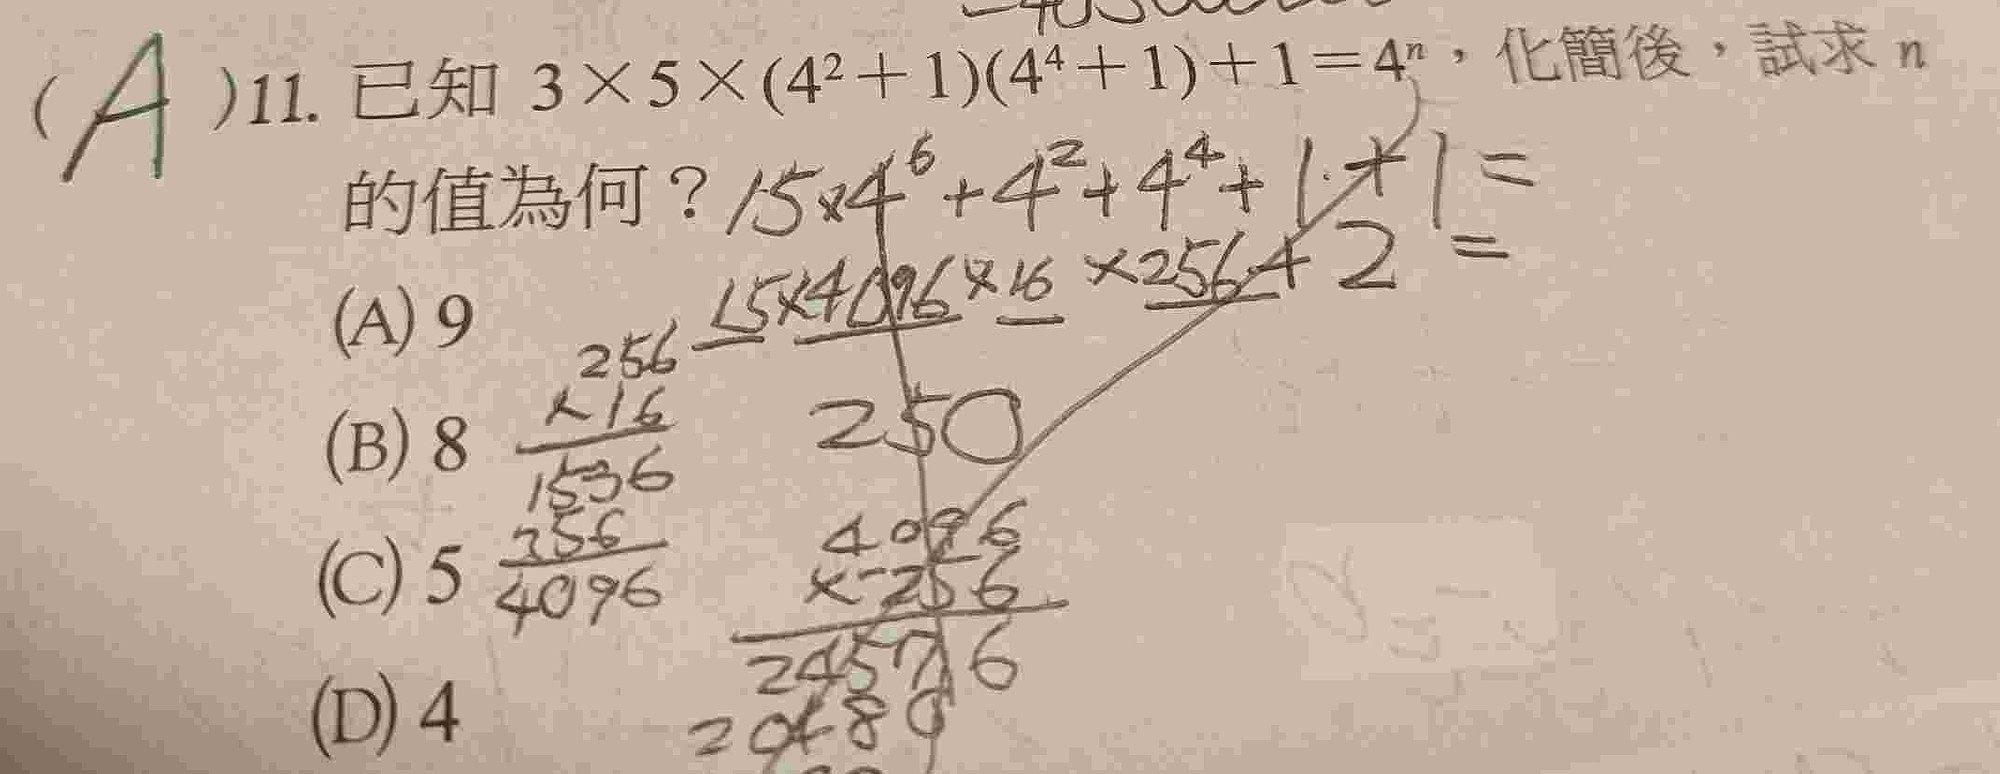 (A)11. 已知 3×5×(4²+1)(4⁴+1)+1=4ⁿ，化簡後，試求 n
的值為何？15×4⁶+4²+4⁴+1+1=
15×4096×16×256+2=
(A) 9
256
×16
1536
256
4096
(B) 8
250
(C) 5
4096
×256
24576
20480
(D) 4